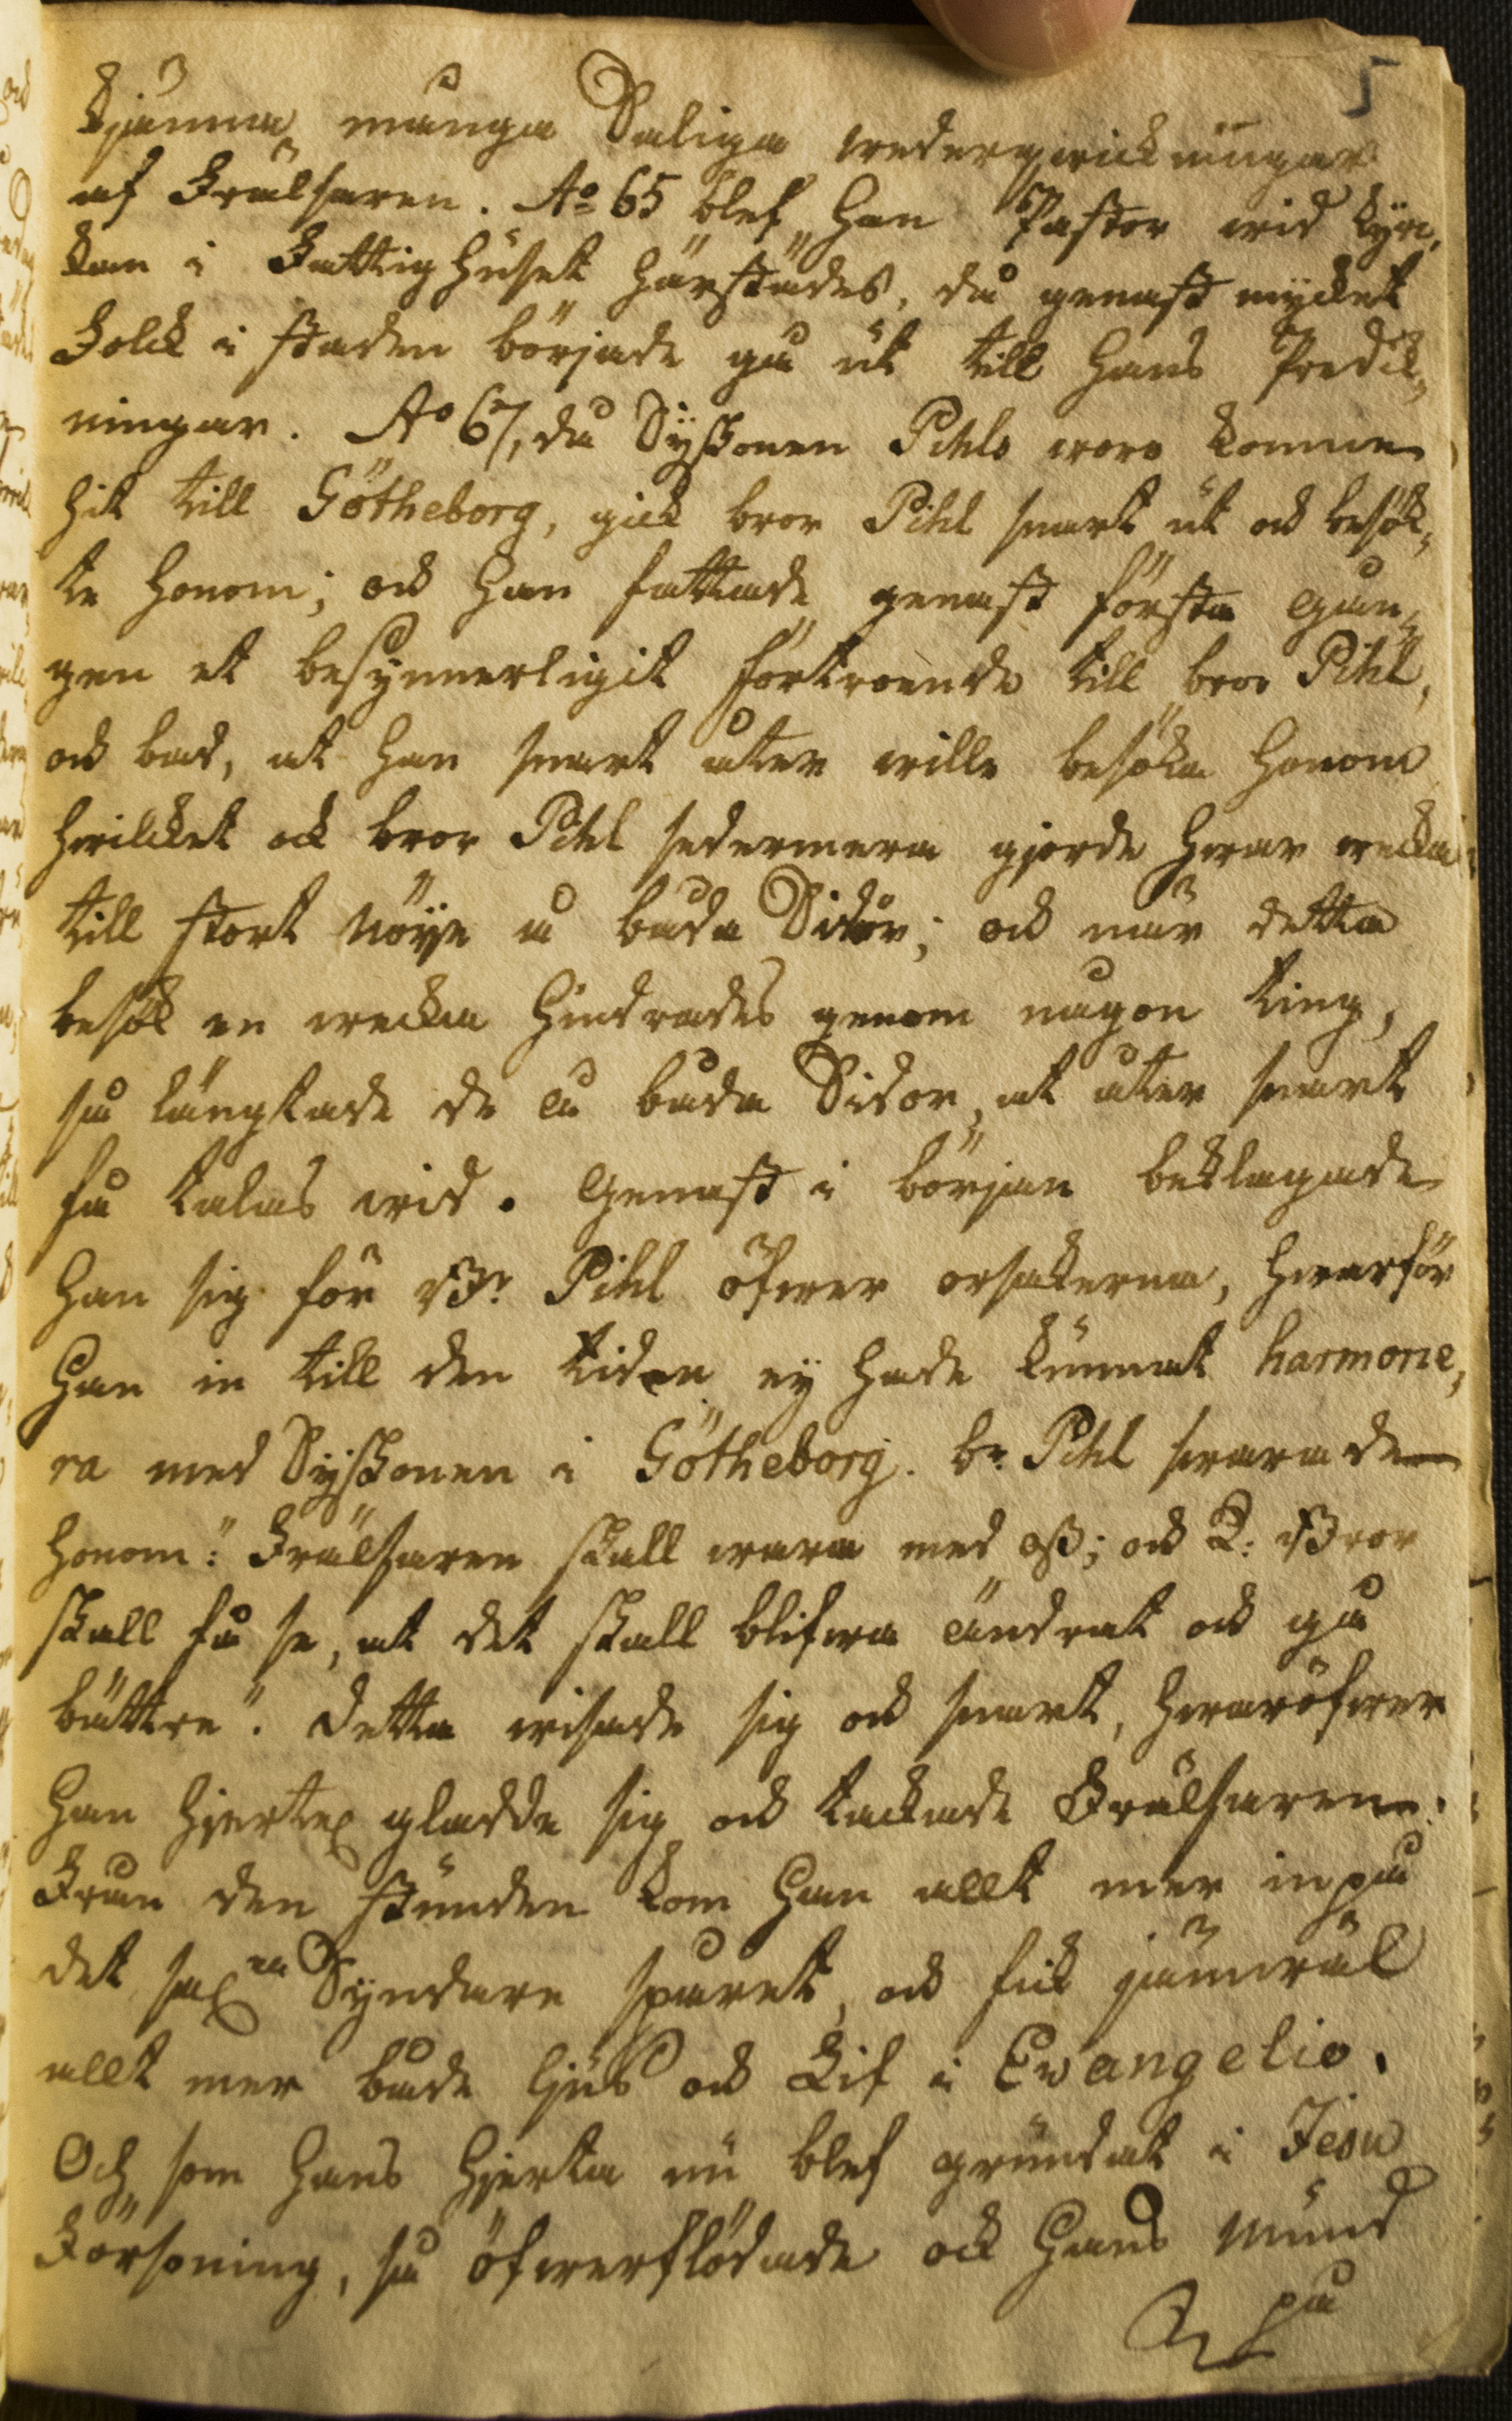 5
kjänna många Saliga wederqwickningar
af Frälsaren. Ao 65 blef han Pastor wid Kyr,
kan i Fattighuset härstädes, då genast mycket
Folck i staden började gå ut till hans Predik,
ningar. Ao 67, då Syskonen Pihls woro komne
hit till Götheborg, gick bror Pihl snart ut och besök,
te honom; och han fattade genast första Gån,
gen et besynnerligit förtroende till bror Pihl,
och bad, at han snart åter wille besöka honom
hwilcket ock bror Pihl sedermera gjorde hwar wecka
till stort Nöye å båda Sidor; och när detta
besök en wecka hindrades genom någon ting,
så längtade de å båda Sidor, at åter snart
få talas wid. Genast i början beklagade
han sig för Br. Pihl öfwer orsakerna, hwarför
han in till den tiden ej hade kunnat harmonie,
ra med Syskonen i Götheborg. br. Pihl swarade
honom: "Frälsaren skall wara med oss; och L: Bror
skall få se, at det skall blifwa ändrat och gå
bättre". Detta wisade sig och snart, hwaröfwer
han hjerteln gladde sig och tackade Frälsaren.
Från den stunden kom han allt mer in på
det saln Syndare spåret, och fick jämwäl
allt mer både ljus och Lif i Evangelio.
Och som hans hjerta nu blef grundat i Jesu
Försoning, så öfwerflödade ock hans Mund
på